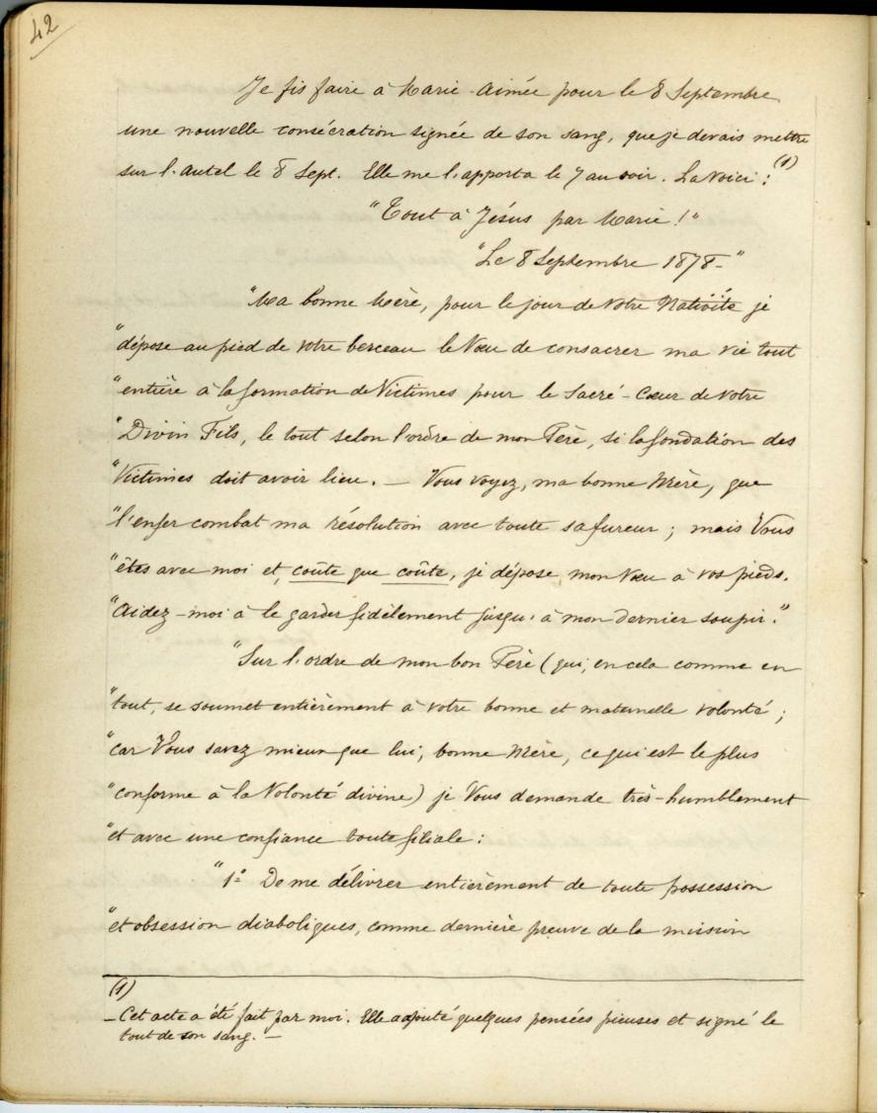 42
Je fis faire à Marie-Aimée pour le 8 Septembre
une nouvelle consécration signée de son sang, que je devais mettre
sur l'autel le 8 Sept. Elle me l'apporta le 7 au soir. La voici : (1)
"Tout à Jésus par Marie !"
"Le 8 Septembre 1878-"
"Ma bonne Mère, pour le jour de Votre Nativité je
"dépose au pied de votre berceau le Vœu de consacrer ma vie tout
"entière à la formation de Victimes pour le Sacré-Cœur de votre
"Divin Fils, le tout selon l'ordre de mon Père, si la fondation des
"Victimes doit avoir lieu. — Vous voyez, ma bonne Mère, que
"l'enfer combat ma résolution avec toute sa fureur ; mais Vous
"êtes avec moi et, coûte que coûte, je dépose mon Vœu à vos pieds.
"Aidez-moi à le garder fidèlement jusqu'à mon dernier soupir."
"Sur l'ordre de mon bon Père (qui, en cela comme en
"tout, se soumet entièrement à votre bonne et maternelle volonté ;
"car Vous savez mieux que lui, bonne Mère, ce qui est le plus
"conforme à la Volonté divine) je Vous demande très-humblement
"et avec une confiance toute filiale :
"1º De me délivrer entièrement de toute possession
"et obsession diaboliques, comme dernière preuve de la mission
(1)
— Cet acte a été fait par moi. Elle a ajouté quelques pensées pieuses et signé le
tout de son sang. —